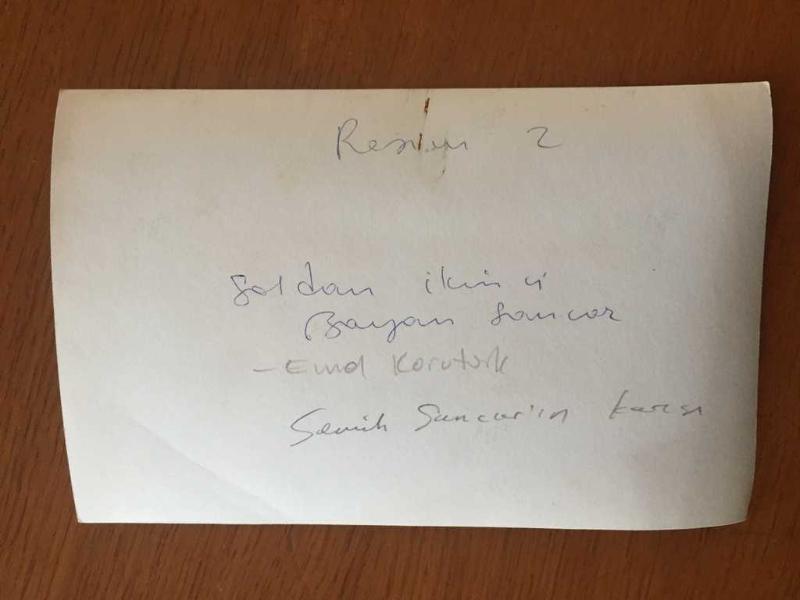 Resim 2
Soldan ikinci
Bayan Sancar
- Emel Korutürk
Semih Sancar'ın karısı